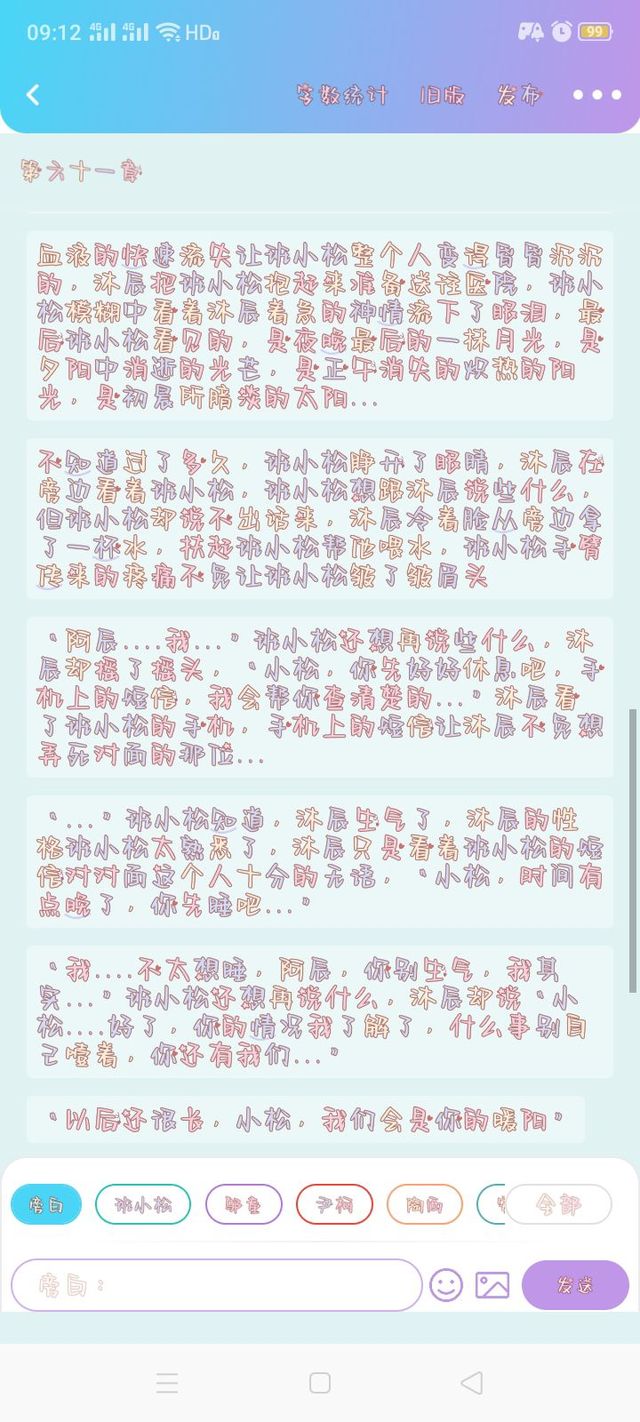 09:12 4G 4G HD 99
字数统计 旧版 发布
第六十一章
血液的快速流失让班小松整个人变得昏昏沉沉
的，沐辰把班小松抱起来准备送往医院，班小
松模糊中看着沐辰着急的神情流下了眼泪，最
后班小松看见的，是夜晚最后的一抹月光，是
夕阳中消逝的光芒，是正午消失的炽热的阳
光，是初晨所陪淡的太阳...
不知道过了多久，班小松睁开了眼睛，沐辰在
旁边看着班小松，班小松想跟沐辰说些什么，
但班小松却说不出话来，沐辰冷着脸从旁边拿
了一杯水，扶起班小松帮他喂水，班小松手臂
传来的疼痛不免让班小松皱了皱眉头
“阿辰....我...”班小松还想再说些什么，沐
辰却摇了摇头，“小松，你先好好休息吧，手
机上的短信，我会帮你查清楚的...”沐辰看
了班小松的手机，手机上的短信让沐辰不免想
弄死对面的那位...
“...”班小松知道，沐辰生气了，沐辰的性
格班小松太熟悉了，沐辰只是看着班小松的短
信对对面这个人十分的无语，“小松，时间有
点晚了，你先睡吧...”
“我....不太想睡，阿辰，你别生气，我其
实...”班小松还想再说什么，沐辰却说“小
松....好了，你的情况我了解了，什么事别自
己噎着，你还有我们...”
“以后还很长，小松，我们会是你的暖阳”
旁白 班小松 邬童 尹柯 陶西 全部
旁白： 发送